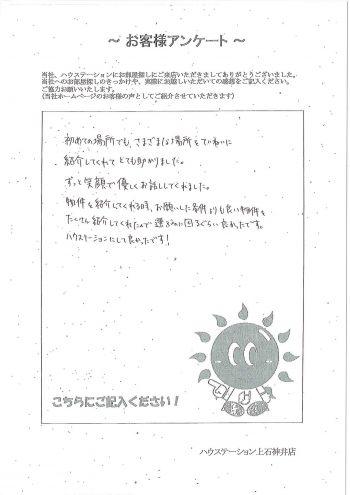 ～ お客様アンケート ～
当社、ハウステーションにお部屋探しにご来店いただきましてありがとうございました。
当社へのお部屋探しのきっかけや、実際にお越しいただいての感想をご記入ください。
ご協力お願いいたします。
(当社ホームページのお客様の声としてご紹介させていただきます)
初めての場所でも、さまざまな場所をていねいに
紹介してくれてとても助かりました。
ずっと笑顔で優しくお話ししてくれました。
物件を紹介してくれる時、お願いした条件よりも良い物件を
たくさん紹介してくれたので選ぶのに困るぐらい良かったです。
ハウステーションにして良かったです！
こちらにご記入ください！
ハウステーション上石神井店